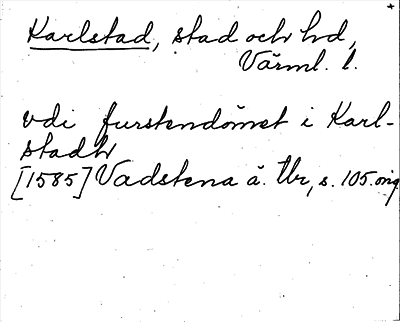 Karlstad, stad och hd,
Värml. l.
vdi furstendömet i Karl-
stadh
[1585] Vadstena ä. Tb, s. 105. orig